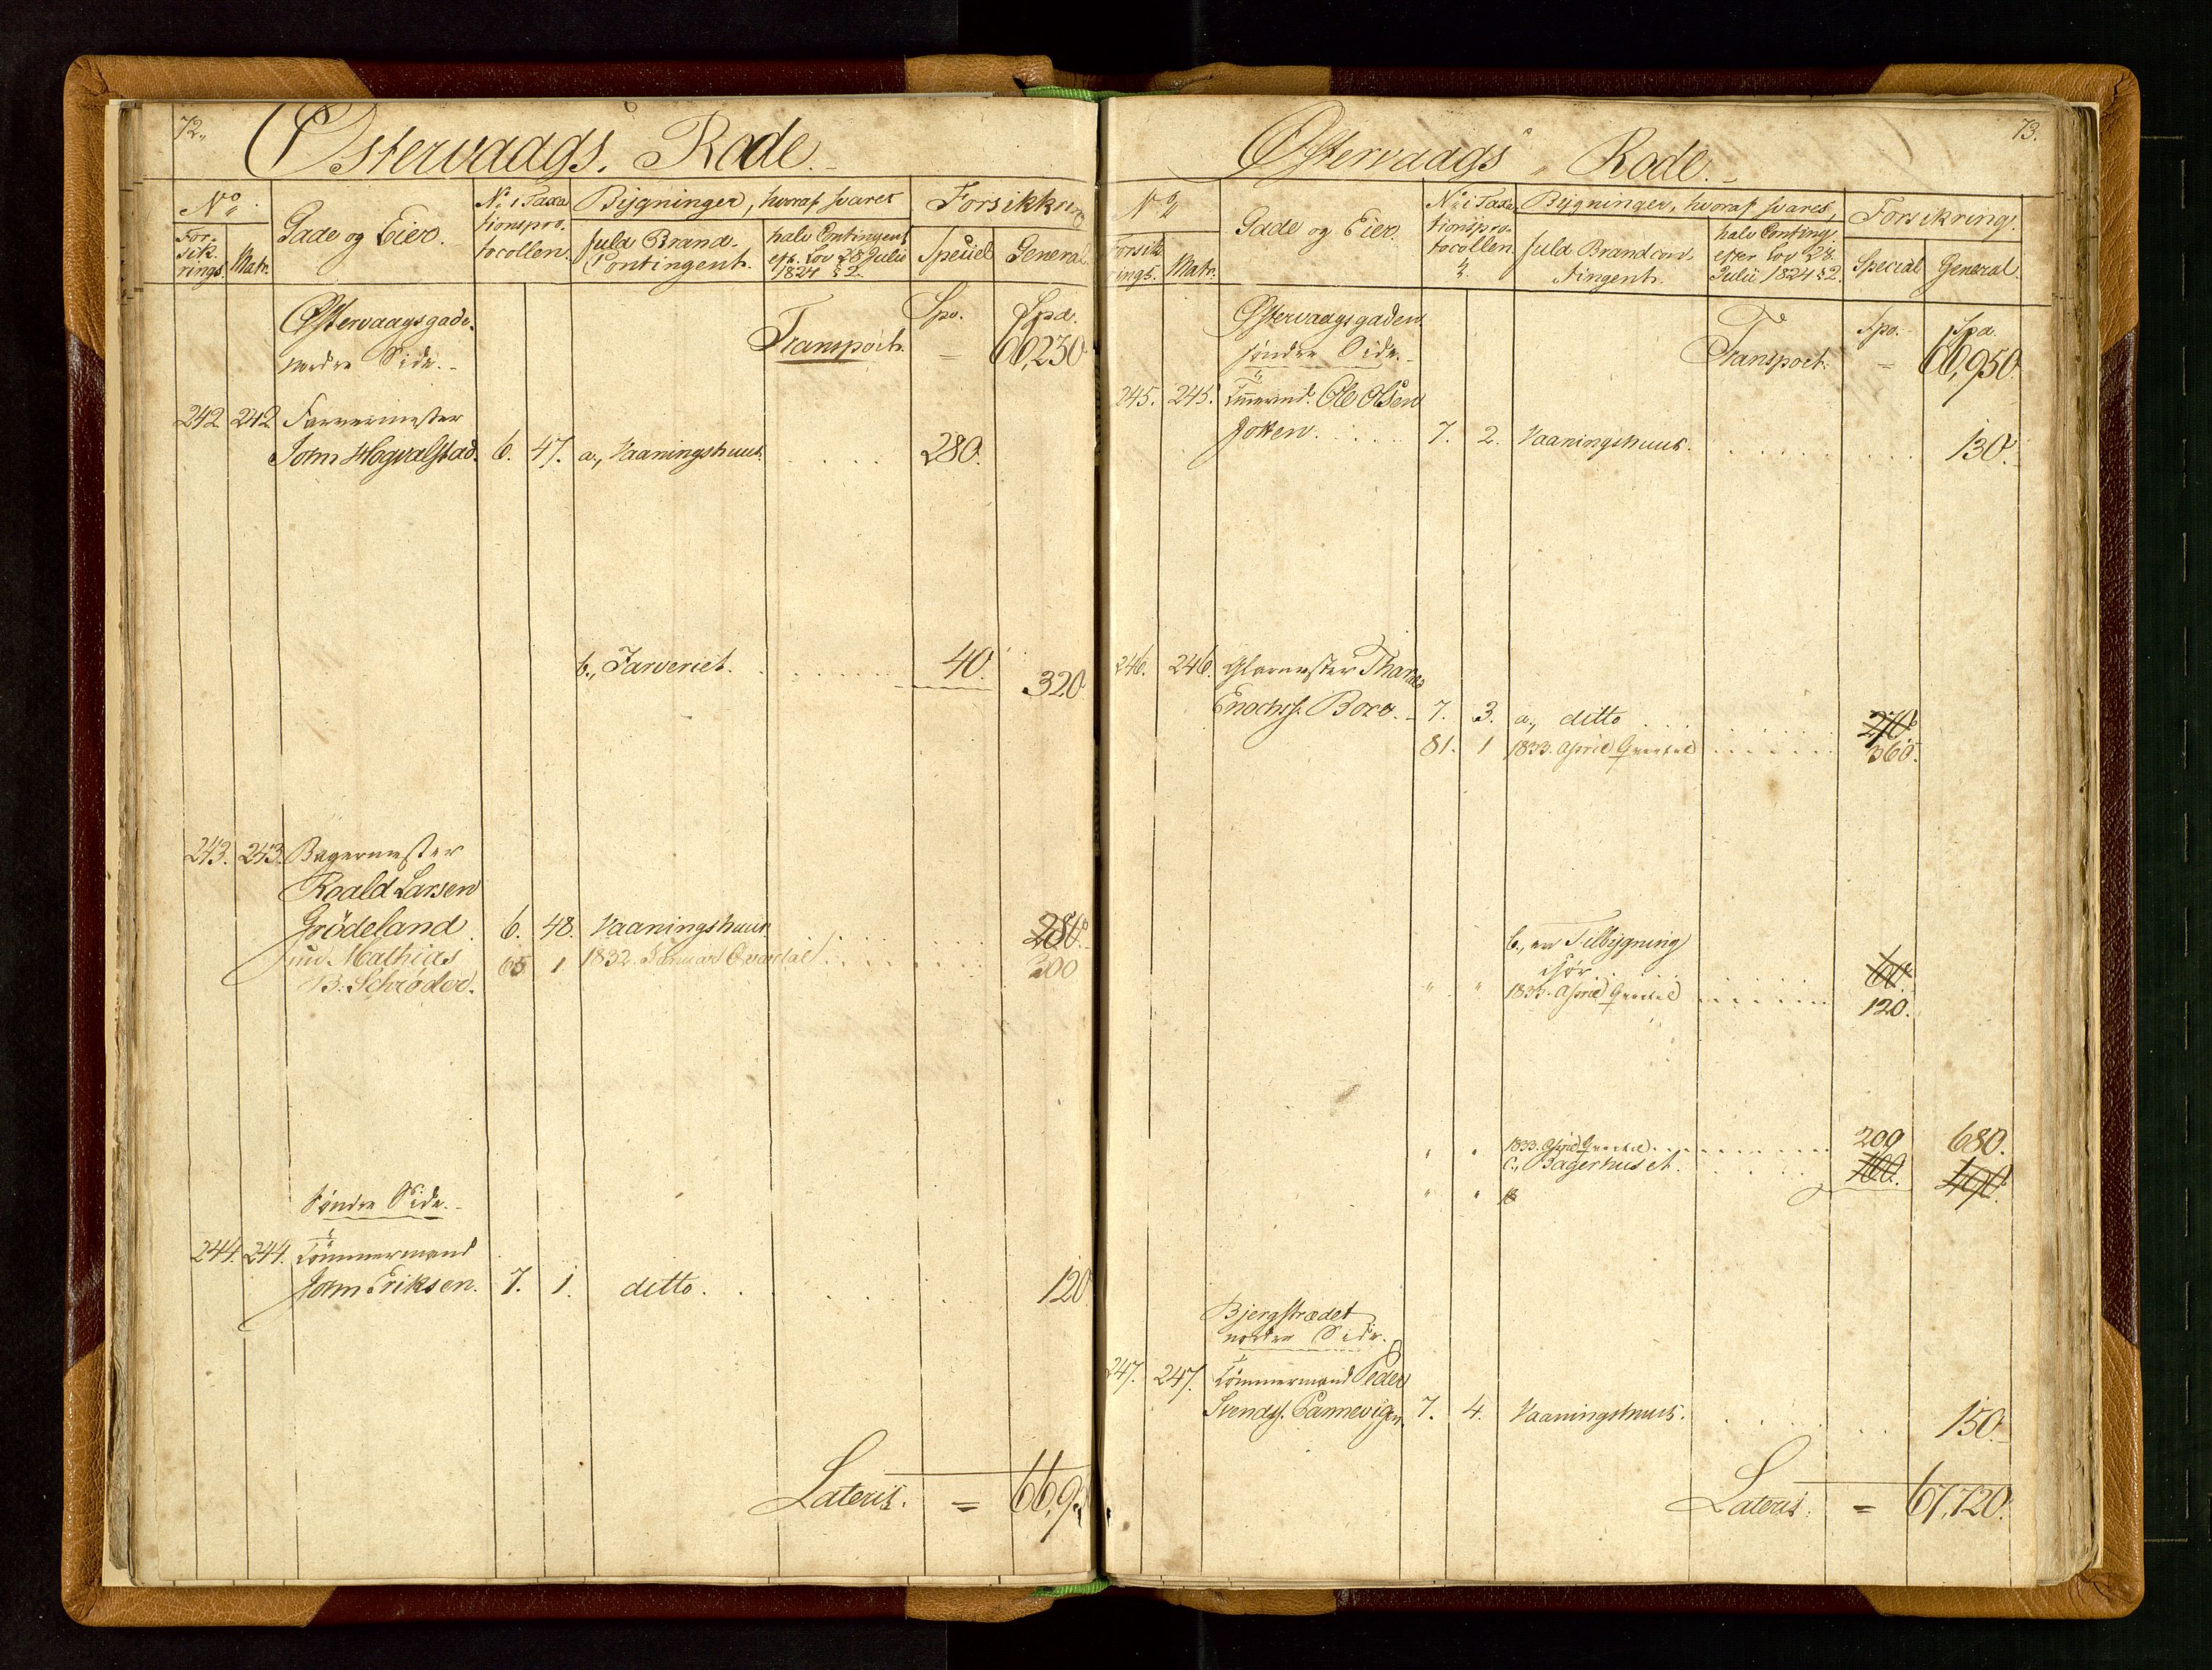 72.
Østervaags. Rode.
No.
Gade og Eier.
No. i Taxa
tionspro.
tocollen.
Bygninger, hvoraf svares
Forsikkring
For-
sik.
rings
Matr.
fuld Brand-
Contingent.
halv Contingent
eft. Lov 28 Julii
1824 § 2.
Speciel
General.
Østervaagsgade.
nordre Side.
Transport.
Spd.
Spd.
66,230
242 242 Farvermester
John Hogvalstad. 6. 47. a., Vaaningshuus. . . . . 280.
b., Farveriet. . . . . . 40. 320
243. 243. Bagermester
Roald Larsen
Grödeland. 6. 48. Vaaningshuus . . . 280.
nu Mathias 65 1 1832. Januar Qvartal . . . 300
B. Schrøder.
Søndre Side.
244. 244. Tömmermand
John Eriksen. 7. 1. ditto. . . . . 120
Lateris. = 66,9
73.
Østervaags Rode.
No.
Gade og Eier.
No. i Taxa
tionspro-
tocollen
Bygninger, hvoraf svares,
Forsikring.
Forsik
rings.
Matr.
fuld Brandcon-
tingent.
halv Conting.
efter Lov 28.
Julii 1824 § 2.
Special
General.
Østervaagsgaden
søndre Side.
Transport.
Spd.
Spd.
= 66,950.
245. 245. Tmrmd. Ole Olsen
Joken. . . . . 7. 2. Vaaningshuus. . . . . . 130.
246. 246. Glarmester
Enochs. Boro. 7. 3. a., ditto . . . 270.
81. 1 1833. April Qvartal . . . . . 360.
b., en Tilbygning
isør. . . . . 60.
" " 1833. April Qvartal . . . . . 120.
" " 1833. April Qvartal . . . . . 200 680.
c., Bagerhuset. . . . . 100. 490.
" "
Bjergstrædet
nordre Side.
247. 247. Tömmermand Peder
Svends. Pannevigen. 7. 4. Vaaningshuus. . . . . 150.
Lateris. = 67,720.